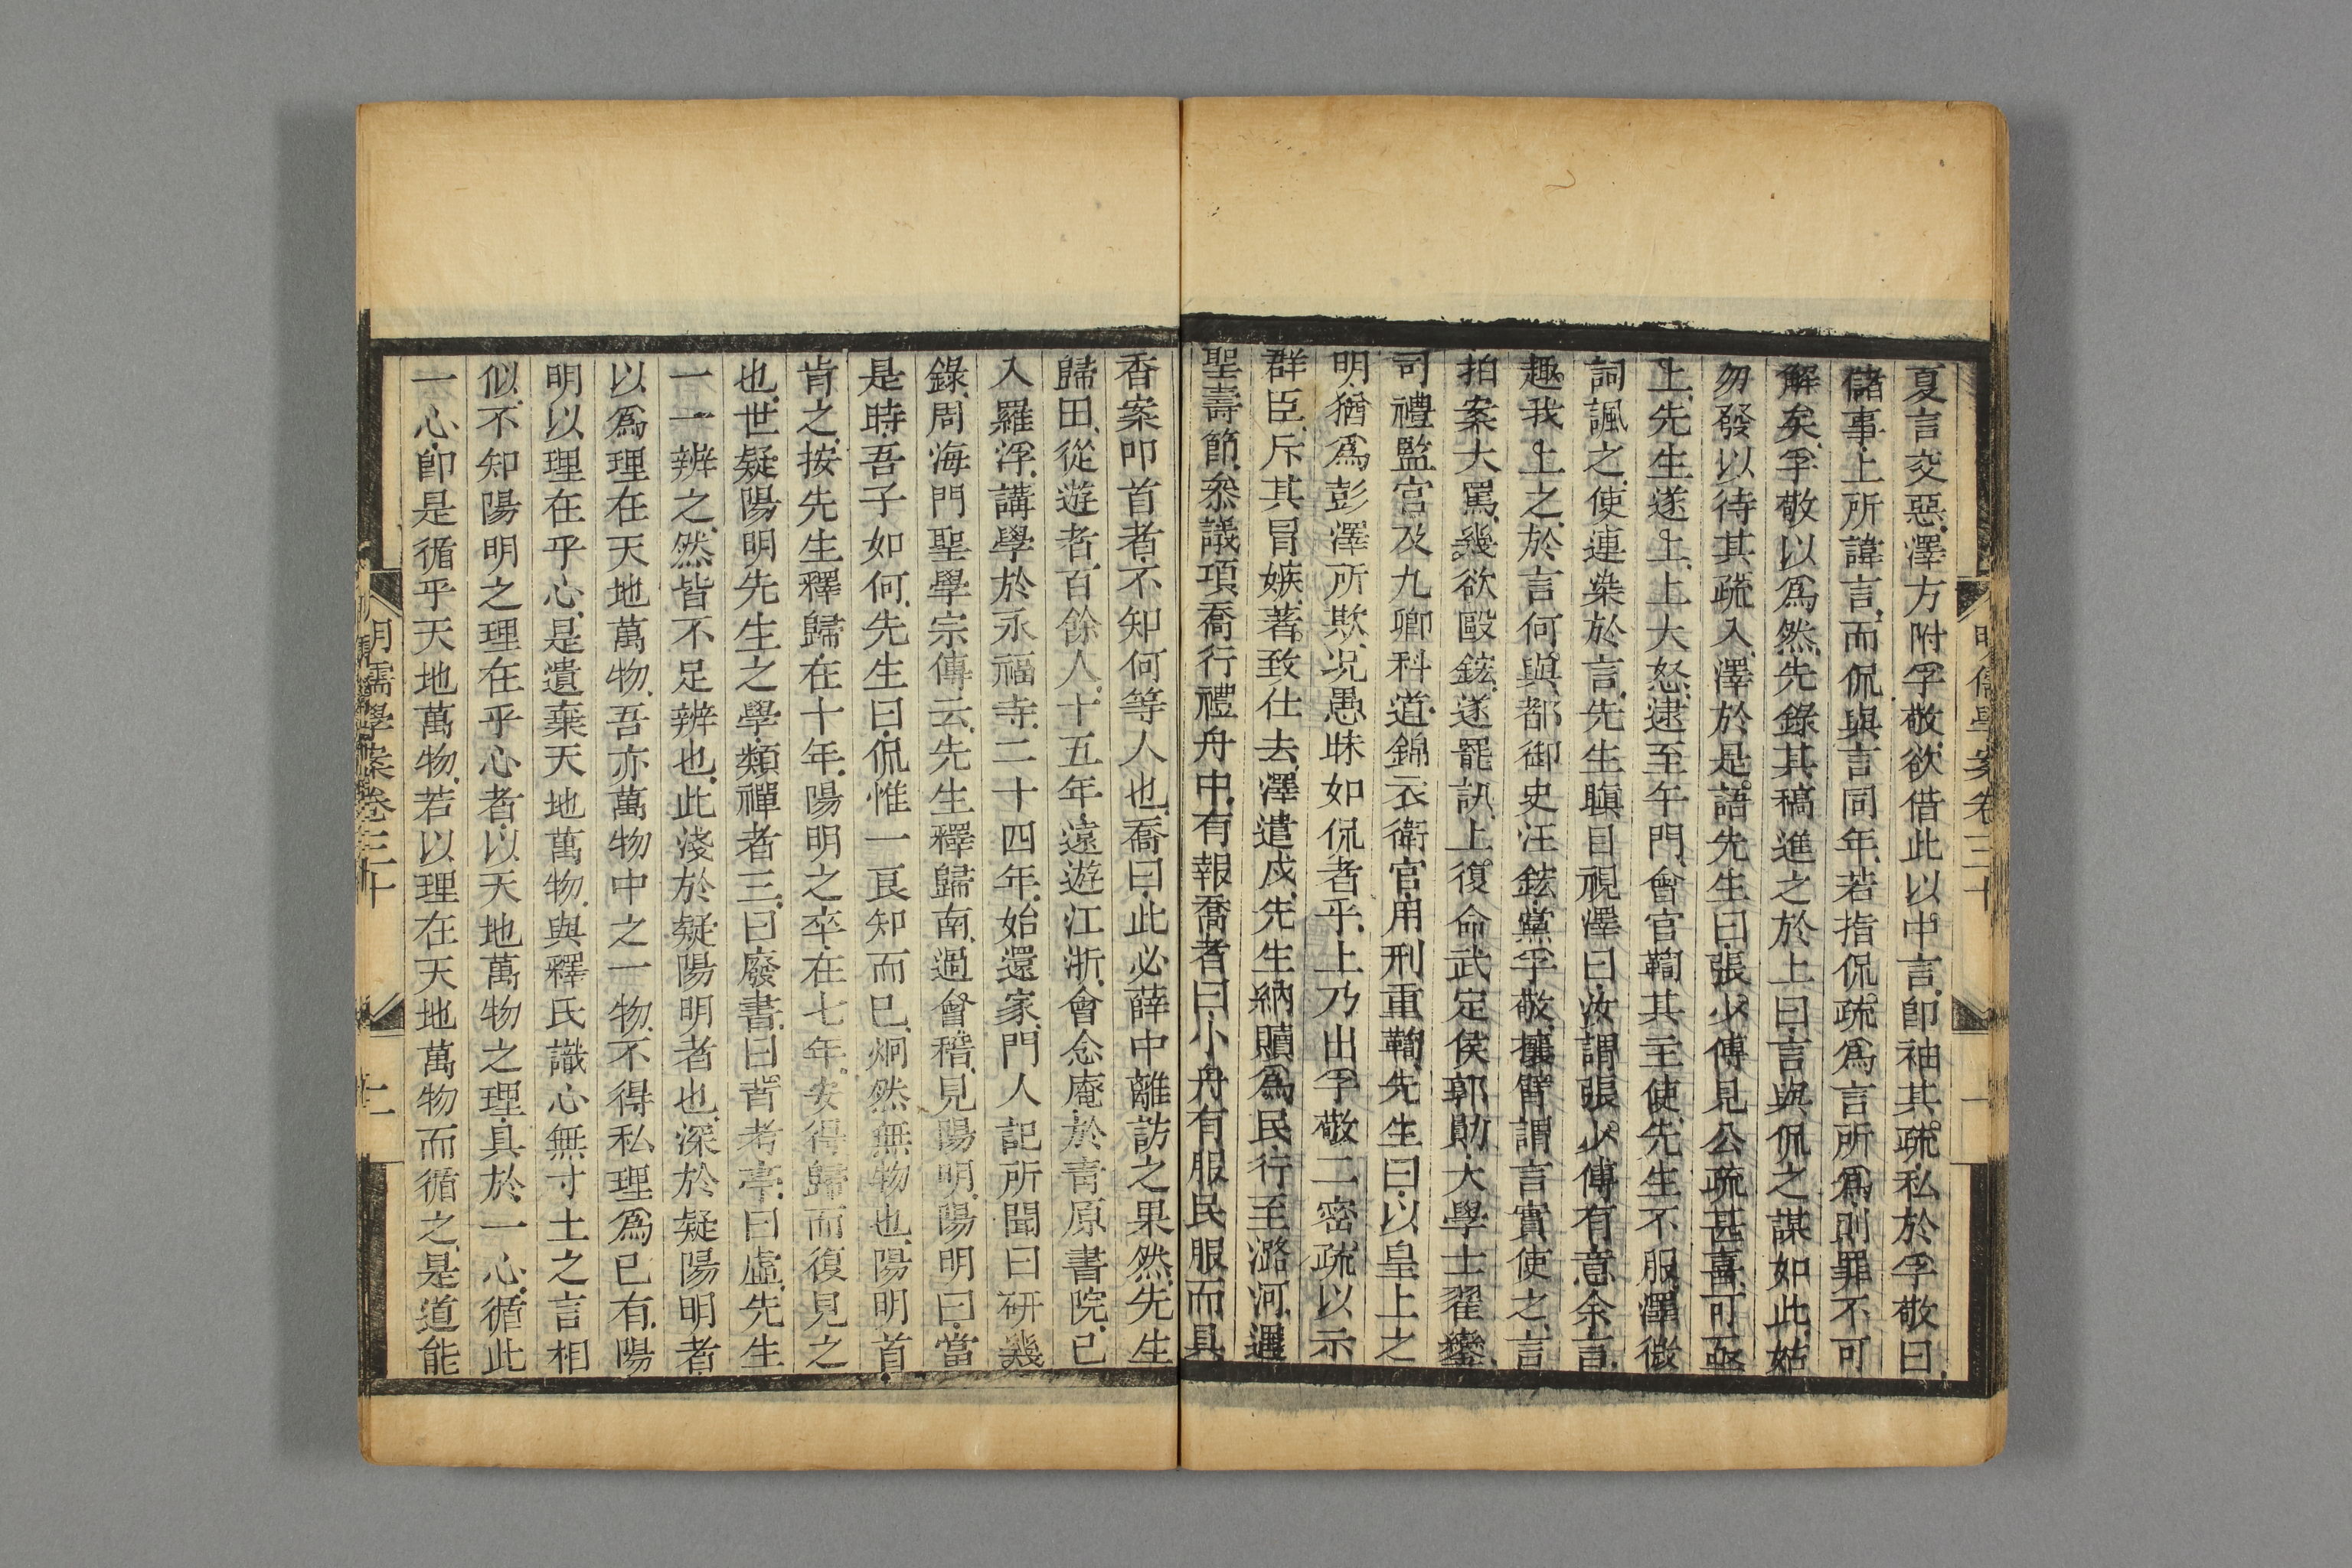 明儒學案卷三十
一
夏言交惡澤方附孚敬欲借此以中言卽袖其疏私於孚敬曰
儲事上所諱言而侃與言同年若指侃疏爲言所爲則罪不可
解矣孚敬以爲然先錄其稿進之於上曰言與侃之謀如此姑
勿發以待其疏入澤於是語先生曰張少傅見公疏甚喜可亟
上先生遂上上大怒逮至午門會官鞫其主使先生不服澤微
詞諷之使連染於言先生瞋目視澤曰汝謂張少傅有意余言
趣我上之於言何與都御史汪鋐黨孚敬攘臂謂言實使之言
拍案大罵幾欲毆鋐遂罷訊上復命武定侯郭勛大學士翟鑾
司禮監官及九卿科道錦衣衛官用刑重鞫先生曰以皇上之
明猶爲彭澤所欺况愚昧如侃者乎上乃出孚敬二密疏以示
群臣斥其冒嫉著致仕去澤遣戍先生納贖爲民行至潞河遇
聖壽節叅議項喬行禮舟中有報喬者曰小舟有服民服而具
香案叩首者不知何等人也喬曰此必薛中離訪之果然先生
歸田從遊者百餘人十五年遠遊江浙會念庵於青原書院已
入羅浮講學於永福寺二十四年始還家門人記所聞曰研幾
錄周海門聖學宗傳云先生釋歸南過會稽見陽明陽明曰當
是時吾子如何先生曰侃惟一良知而已炯然無物也陽明首
肯之按先生釋歸在十年陽明之卒在七年安得歸而復見之
也世疑陽明先生之學類禪者三曰廢書曰背考亭曰虛先生
一一辨之然皆不足辨也此淺於疑陽明者也深於疑陽明者
以爲理在天地萬物吾亦萬物中之一物不得私理爲已有陽
明以理在乎心是遺棄天地萬物與釋氏識心無寸土之言相
似不知陽明之理在乎心者以天地萬物之理具於一心循此
一心卽是循乎天地萬物若以理在天地萬物而循之是道能
明儒學案卷三十
二